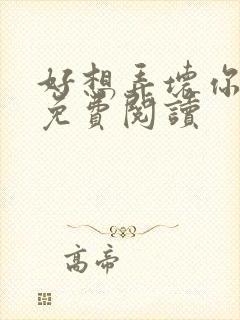 好想弄壞你
免費閱讀
高帝